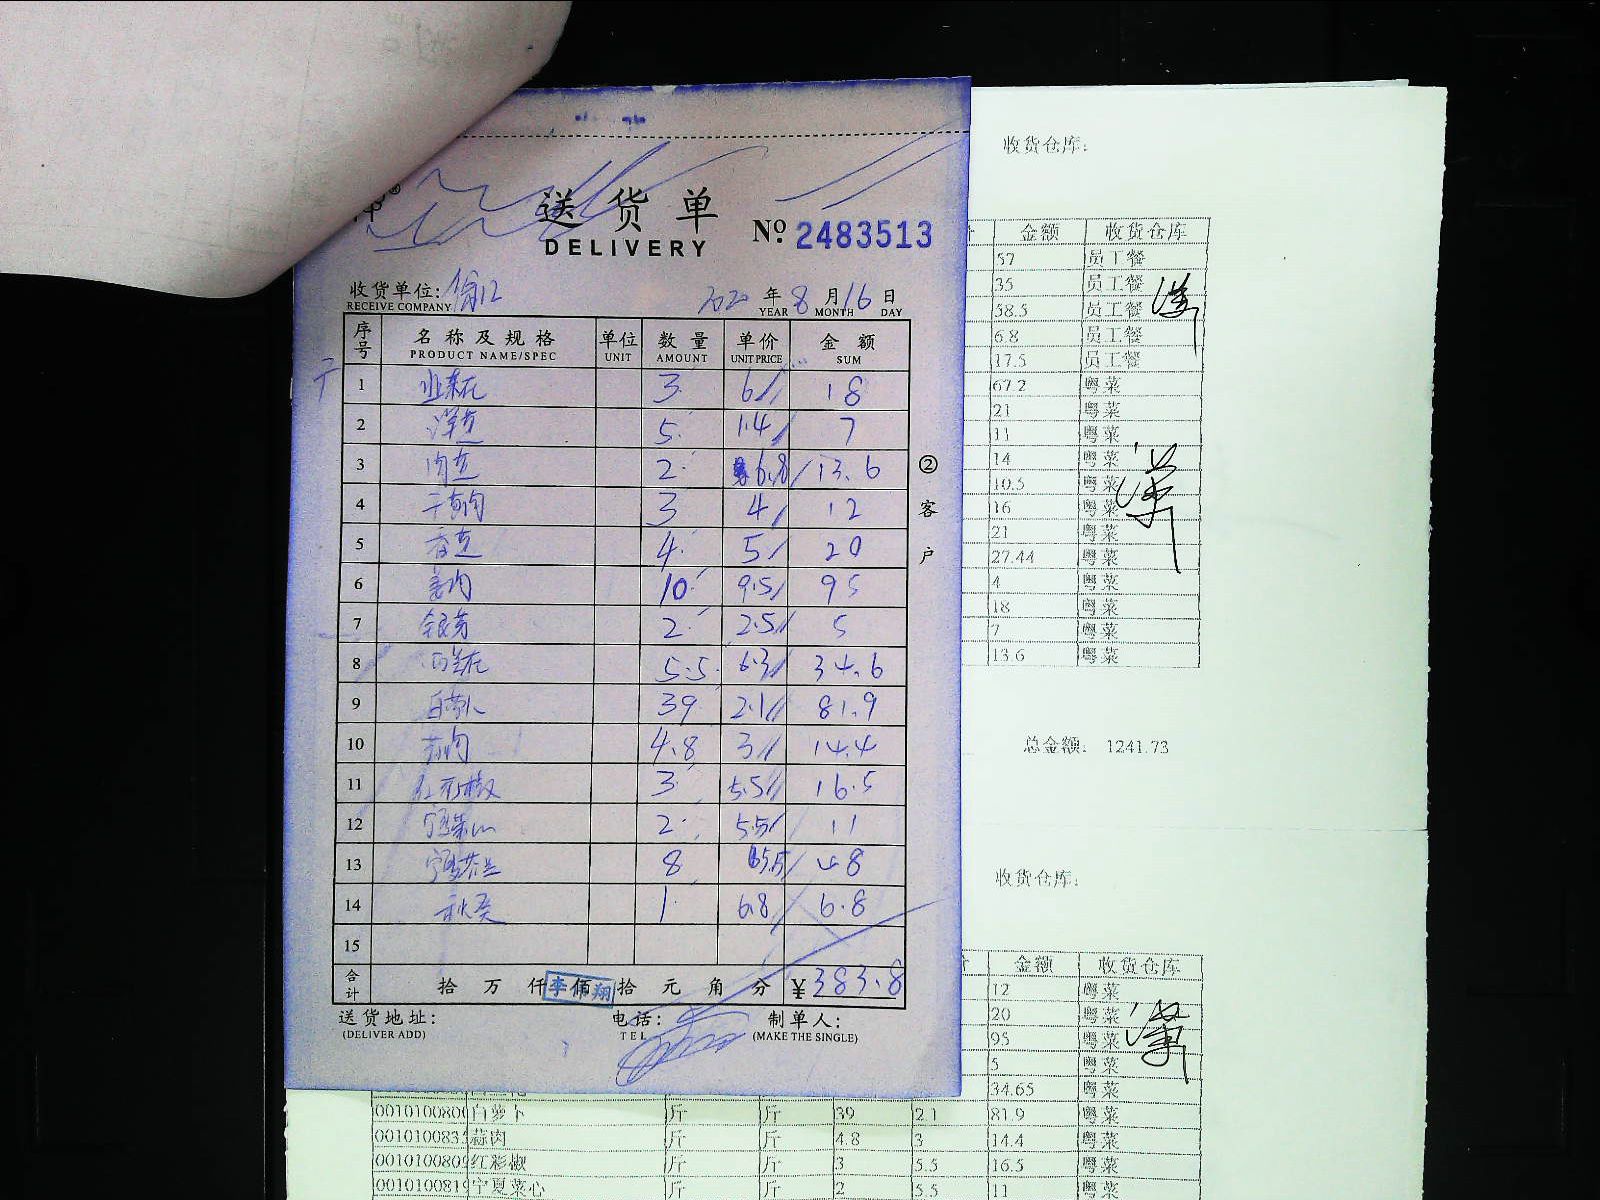 送货单
DELIVERY
No. 2483513
收货单位:
RECEIVE COMPANY
2020 年 8 月 16 日
YEAR MONTH DAY
序号 名称及规格 单位 数量 单价 金额
PRODUCT NAME/SPEC UNIT AMOUNT UNIT PRICE SUM
1 韭菜花 3 6 18
2 洋芫 5 1.4 7
3 肉芫 2 6.8 13.6
4 3 4 12
5 香芫 4 5 20
6 姜肉 10 9.5 95
7 银芽 2 2.5 5
8 西兰花 5.5 6.3 34.6
9 白萝卜 39 2.1 81.9
10 蒜肉 4.8 3 14.4
11 红彩椒 3 5.5 16.5
12 宁夏菜心 2 5.5 11
13 宁夏芥兰 8 48
14 秋葵 1 6.8 6.8
15
合计 拾 万 仟 佰 拾 元 角 分 ¥383.8
李 翔
送货地址: 电话: 制单人:
(DELIVER ADD) TEL (MAKE THE SINGLE)
②客户
收货仓库:
金额 收货仓库
57 员工餐
35 员工餐
38.5 员工餐
6.8 员工餐
17.5 员工餐
67.2 粤菜
21 粤菜
11 粤菜
14 粤菜
10.5 粤菜
16 粤菜
21 粤菜
27.44 粤菜
4 粤菜
18 粤菜
7 粤菜
13.6 粤菜
总金额: 1241.73
收货仓库:
金额 收货仓库
12 粤菜
20 粤菜
95 粤菜
5 粤菜
34.65 粤菜
白萝卜 斤 斤 39 2.1 81.9 粤菜
蒜肉 斤 斤 4.8 3 14.4 粤菜
红彩椒 斤 斤 3 5.5 16.5 粤菜
宁夏菜心 斤 斤 2 5.5 11 粤菜